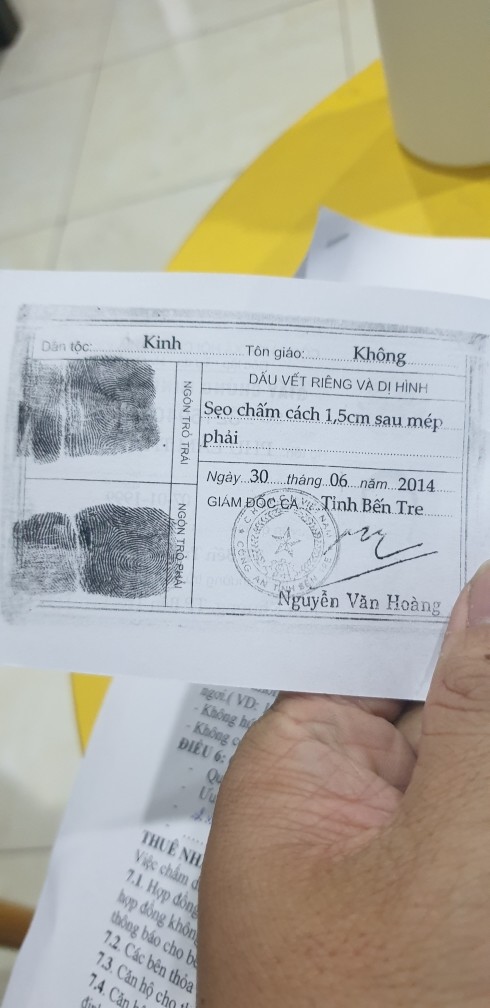 Dân tộc: Kinh Tôn giáo: Không
NGÓN TRỎ TRÁI
DẤU VẾT RIÊNG VÀ DỊ HÌNH
Sẹo chấm cách 1,5cm sau mép
phải
Ngày 30 tháng 06 năm 2014
NGÓN TRỎ PHẢI
GIÁM ĐỐC CA Tỉnh Bến Tre
Nguyễn Văn Hoàng
ngơi.( VD:
- Không
- Không
ĐIỀU 6:
THUÊ
Việc chấm
7.1. Hợp đồng
hợp đồng
thông báo cho
7.2. Các bên thỏa
7.3. Căn hộ cho
7.4. Căn